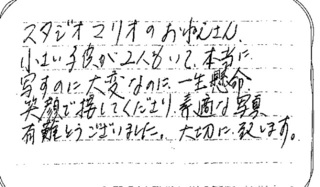 スタジオマリオのおねえさん、
小さい子供が2人もいて、本当に
写すのに大変なのに一生懸命
笑顔で接してくださり、素適な写真
有難とうございました。大切に致します。